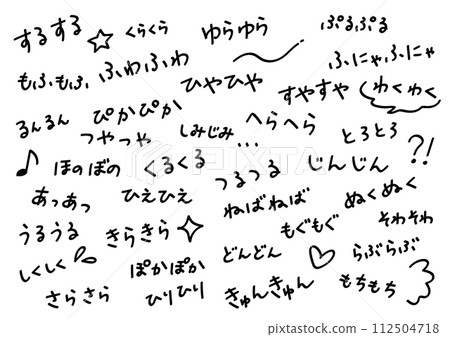 するする くらくら ゆらゆら ぷるぷる
もふもふ ふわふわ ひやひや ふにゃふにゃ
すやすや わくわく
るんるん ぴかぴか へらへら
つやつや しみじみ … とろとろ
ほのぼの くるくる つるつる じんじん ?!
あつあつ ひえひえ ねばねば ぬくぬく
うるうる きらきら もぐもぐ そわそわ
しくしく ぽかぽか どんどん らぶらぶ
さらさら ひりひり きゅんきゅん もちもち
PIXTA
112504718